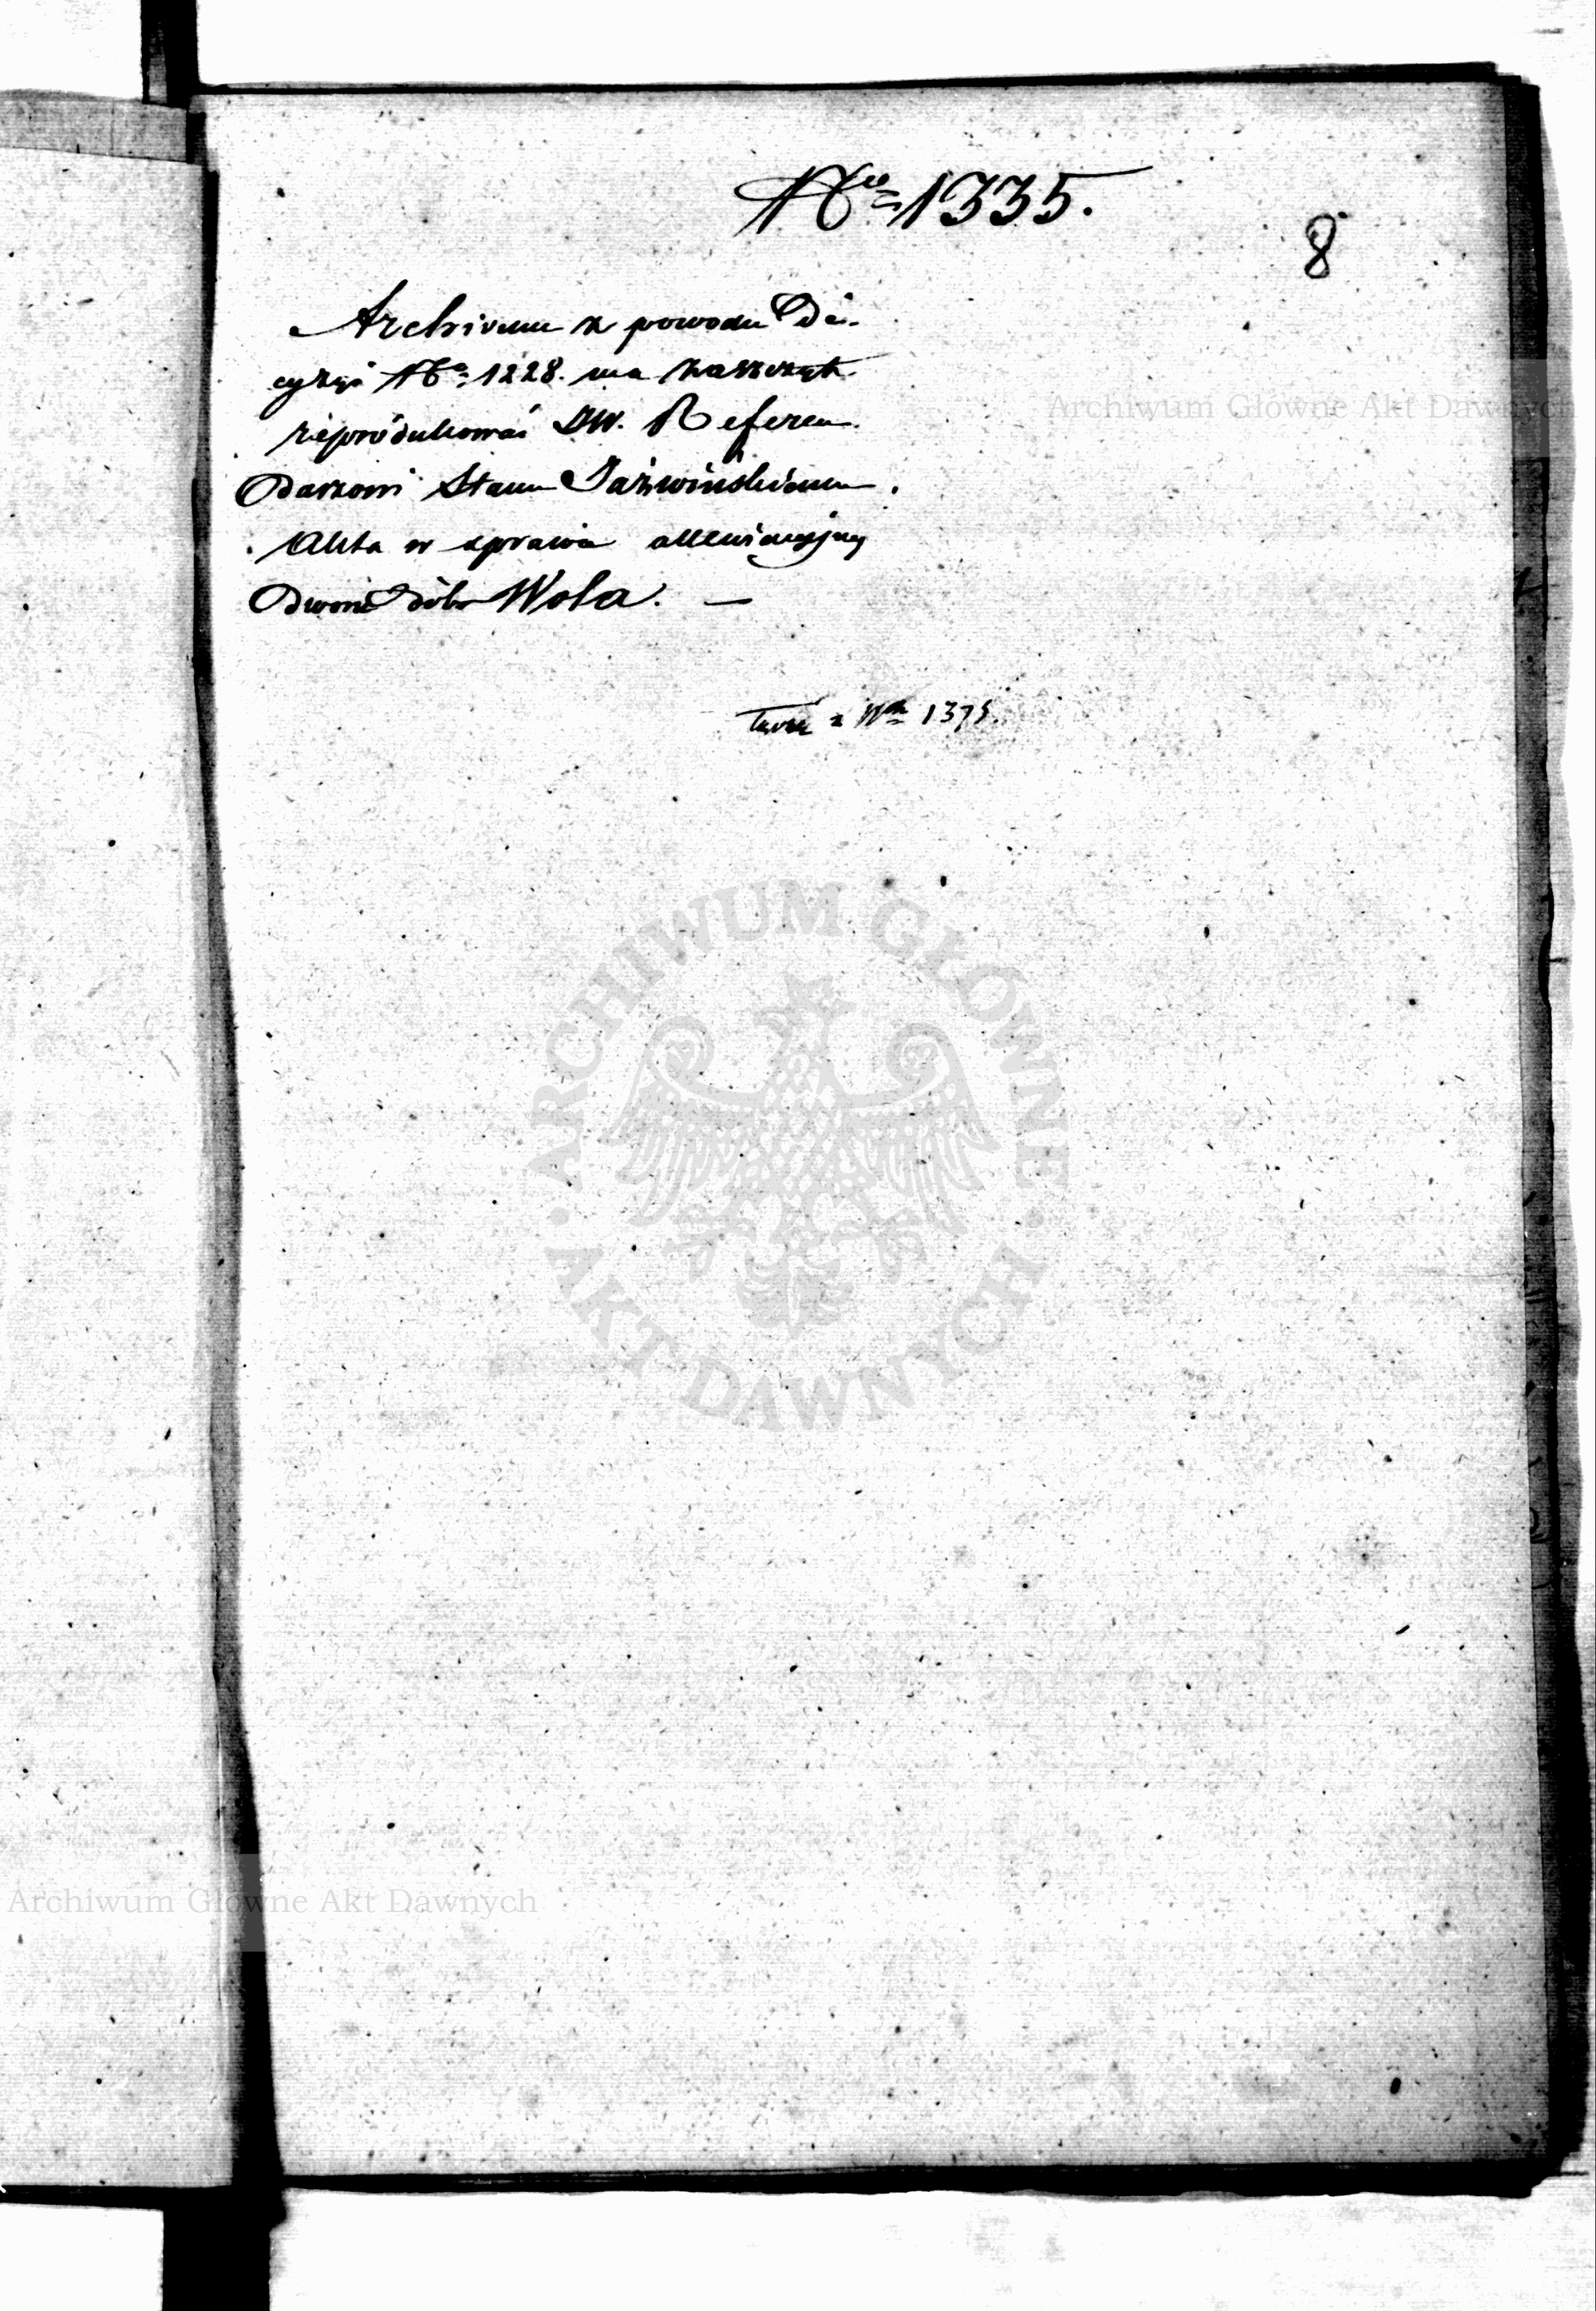 Nro 1335.
8
Archivum z powodu De-
cyzyi Nro 1228. ma zaszczyt
reprodukować JW. Referen-
darzowi Stanu Jaźwińskiemu
Akta w sprawie allewiacyjney
Dwóch dóbr Wola. —
z Nrm 1375.
Archiwum Główne Akt Dawnych
ARCHIWUM GŁÓWNE
AKT DAWNYCH
Archiwum Główne Akt Dawnych